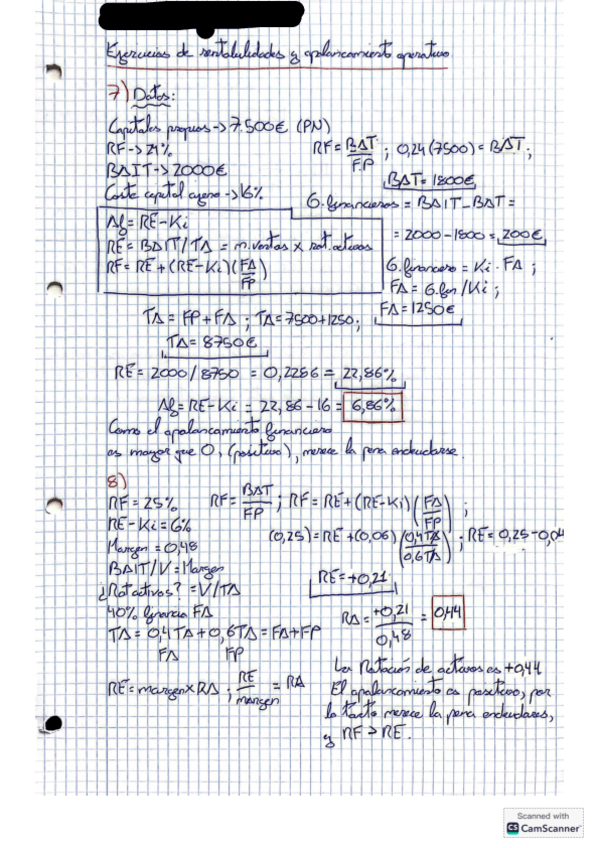 Ejercicios de rentabilidades y apalancamiento operativo
7) Datos:
Capitales propios -> 7.500€ (PN)
RF -> 24%
BAIT -> 2000€
Coste capital ajeno -> 16%
RF = BAT/F.P ; 0,24 (7500) = BAT ;
BAT = 1800€
G. financieros = BAIT - BAT =
= 2000 - 1800 = 200€
Af = RE - Ki
RE = BAIT/TA = m. ventas x rot. activos
RF = RE + (RE - Ki) (FA/FP)
G. financiero = Ki · FA ;
FA = G. fin / Ki ;
FA = 1250€
TA = FP + FA ; TA = 7500 + 1250 ;
TA = 8750€
RE = 2000 / 8750 = 0,2286 = 22,86%
Af = RE - Ki = 22,86 - 16 = 6,86%
Como el apalancamiento financiero
es mayor que 0, (positivo), merece la pena endeudarse.
8)
RF = 25%
RE - Ki = 6%
Margen = 0,48
BAIT/V = Margen
¿Rot activos? = V/TA
40% financia FA
TA = 0,4 TA + 0,6 TA = FA + FP
FA FP
RE = margen x RA ; RE/margen = RA
RF = BAT/FP ; RF = RE + (RE - Ki) (FA/FP) ;
(0,25) = RE + (0,06) (0,4 TA/0,6 TA) ; RE = 0,25 - 0,04
RE = +0,21
RA = +0,21/0,48 = 0,44
La Rotación de activos es +0,44
El apalancamiento es positivo, por
lo tanto merece la pena endeudarse,
y RF > RE.
Scanned with
CS CamScanner